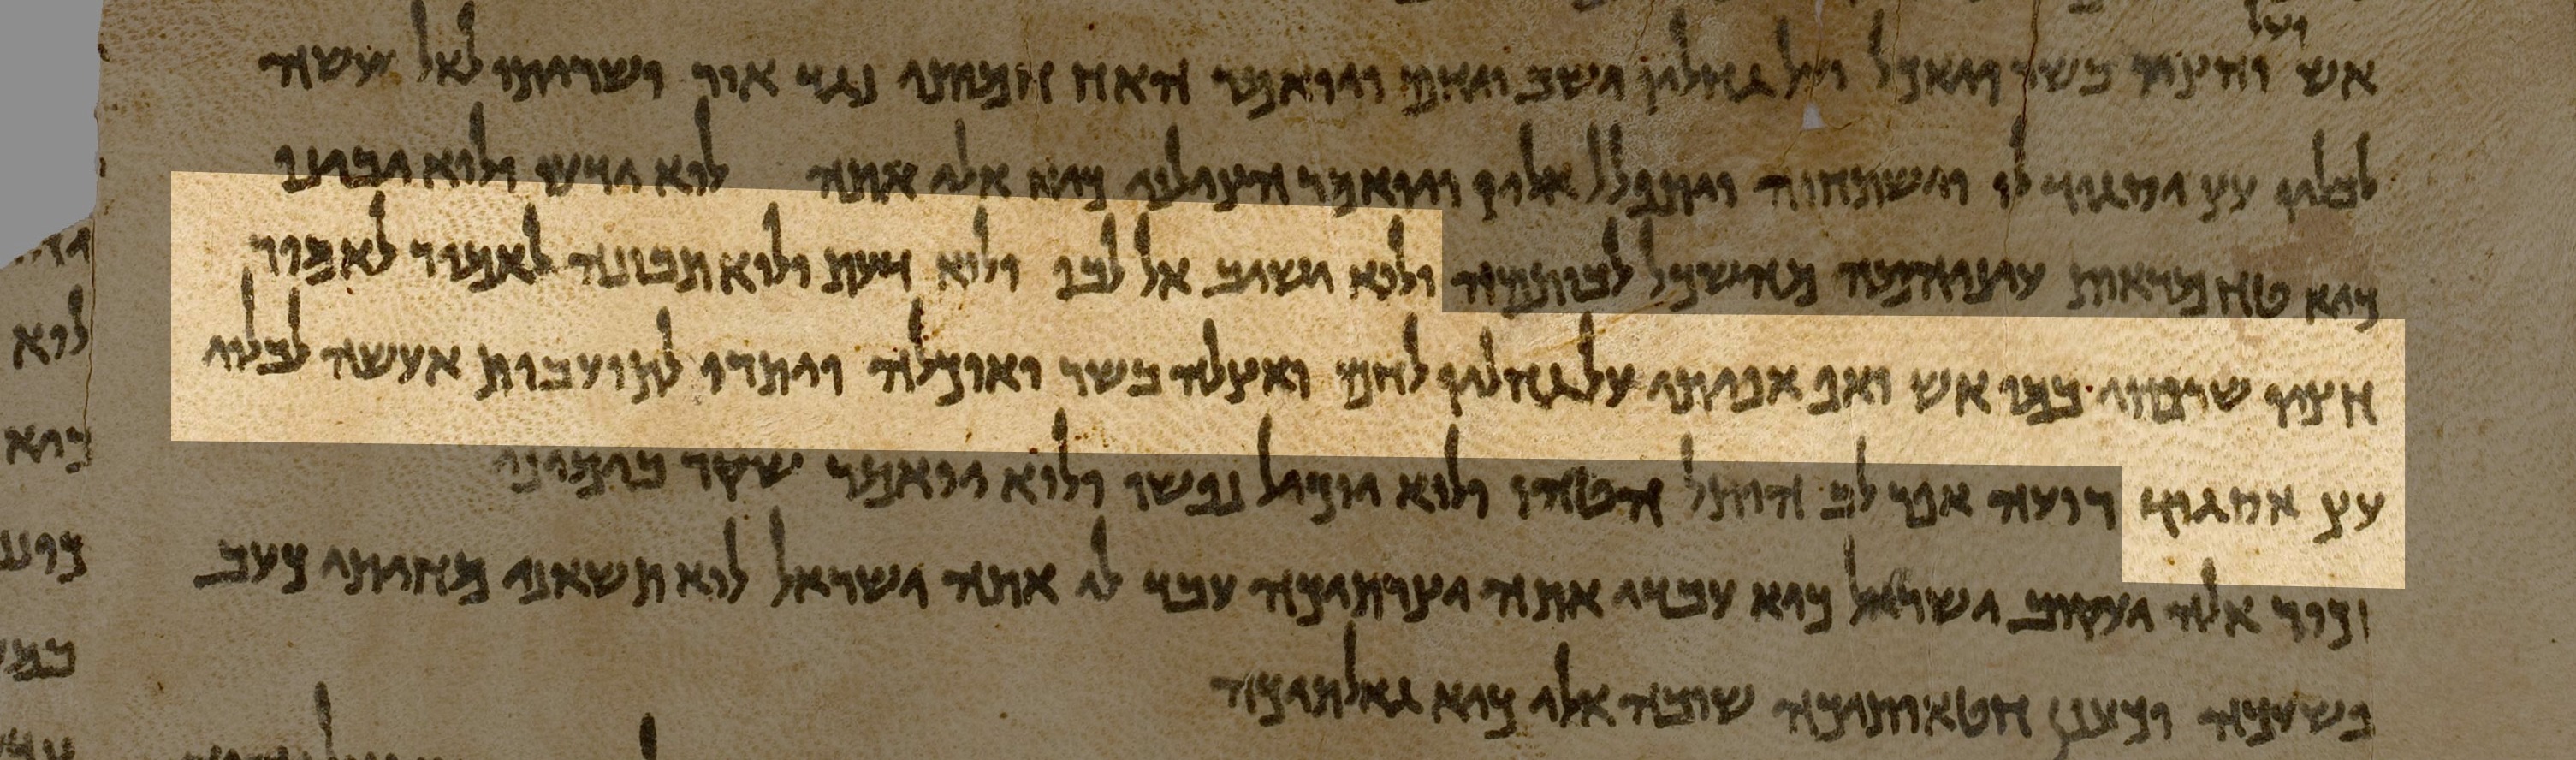 ועל
אש וחציו בשר ויאכל ועל גחליו ישב ויחם ויואמר האח חמותי נגד אור ושריתו לאל עשה
לבלוי עץ יסגוד לו וישתחוה ויתפלל אליו ויואמר הצילני כיא אלי אתה לוא ידעו ולוא יבינו
כיא טח מראות עיניהמה מהשכיל לבותמה ולוא ישוב אל לבו ולוא דעת ולוא תבונה לאמור לאמור
חציו שרפתי במו אש ואף אפיתי על גחליו לחם ואצלה בשר ואוכלה ויתרו לתועבות אעשה לבלוי
עץ אסגוד רועה אפר לב הותל הטהו ולוא יוכיל נפשו ולוא יואמר שקר בימיני
זכור אלה יעקוב ישראל כיא עבדי אתה יצרתיכה עבד לי אתה ישראל לוא תשאני מחיתי כעב
פשעיכה וכענן חטאותיכה שובה אלי כיא גאלתיכה
לוא
כיא